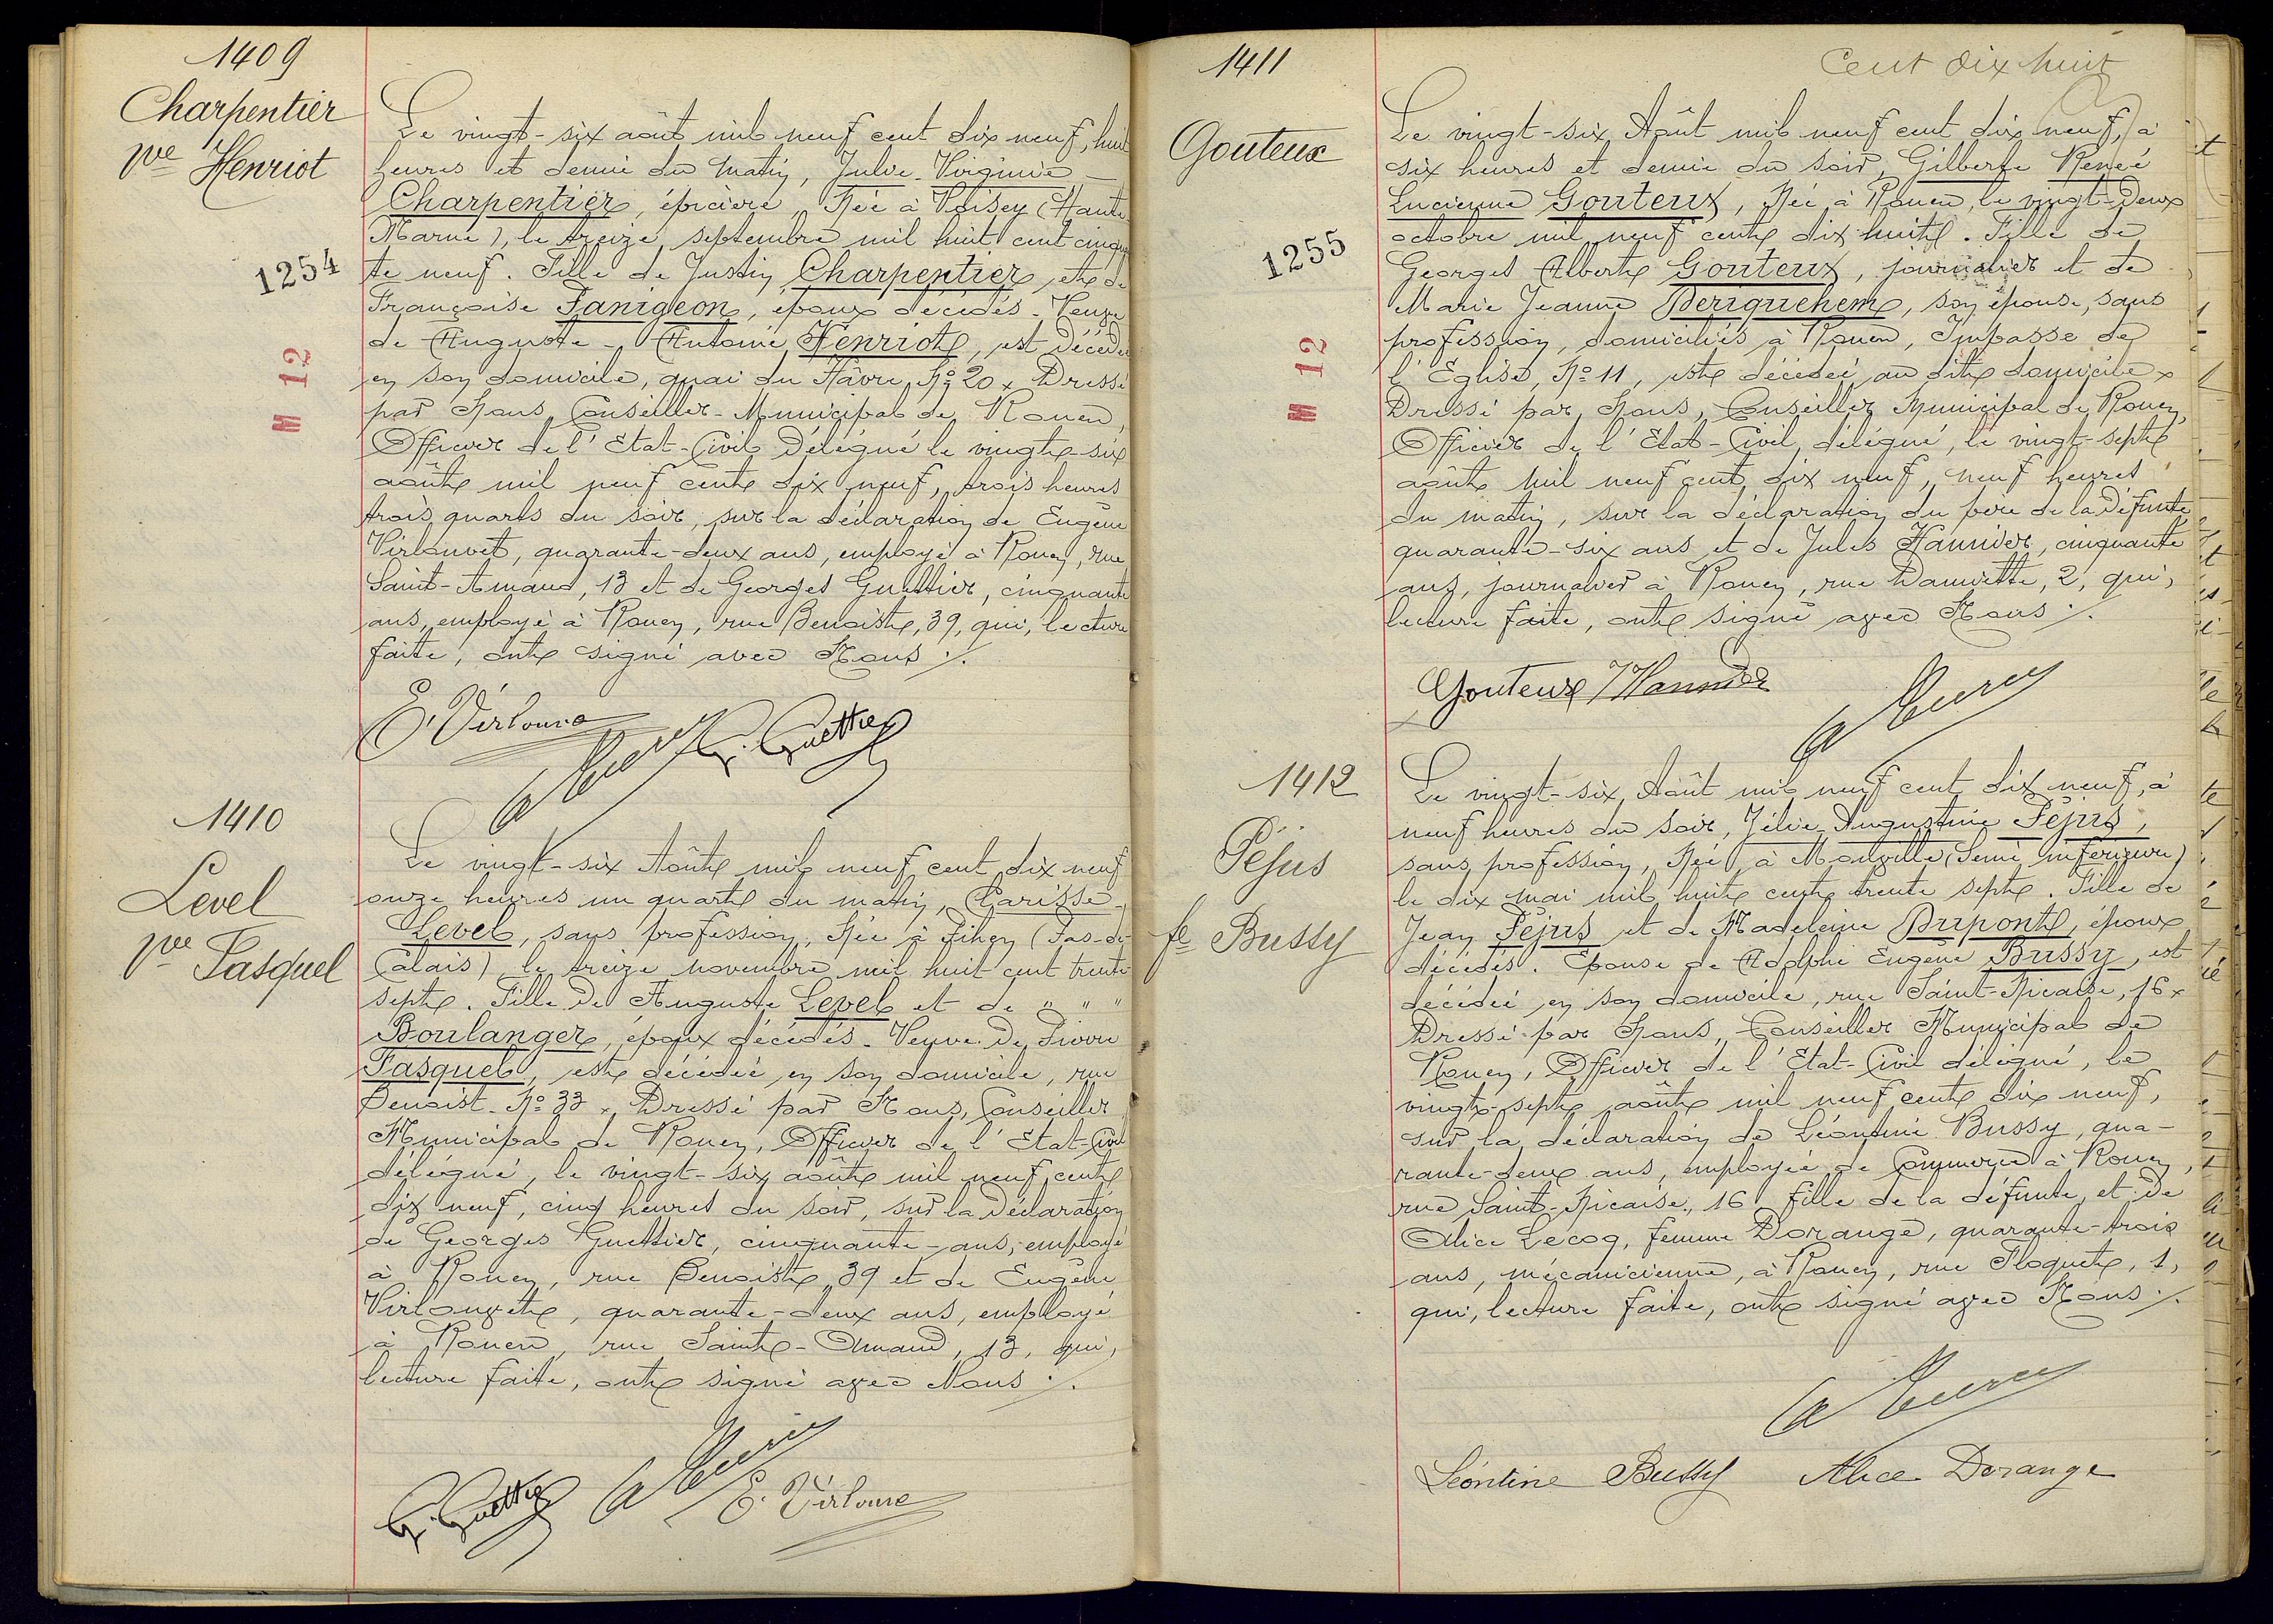 1409
Charpentier
Vve Henriot
1254
M 12
Le vingt-six août mil neuf cent dix neuf, huit
heures et demie du matin, Julie-Virginie
Charpentier, épicière, Née à Voisey (Haute
Marne), le treize septembre mil huit cent cinquan
te neuf. Fille de Justin Charpentier, et de
Françoise Panigeon, époux décédés. Veuve
de Auguste-Antoine Henriot, est décédée
en son domicile, quai du Hâvre, No 20 x Dressé
par Nous, Conseiller-Municipal de Rouen,
Officier de l'Etat-Civil Délégué le vingt-six
août mil neuf cent dix neuf, trois heures
trois quarts du soir, sur la déclaration de Eugène
Virlouvet, quarante-deux ans, employé à Rouen, rue
Saint-Amand, 13 et de Georges Guettier, cinquante
ans, employé à Rouen, rue Benoist, 39, qui, lecture
faite, ont signé avec Nous ./.
E. Virlouve
G. Guettier
1410
Level
Vve Pasquel
Le vingt-six Août mil neuf cent dix neuf
onze heures un quart du matin, Clarisse
Level, sans profession, Née à Fihen (Pas-de-
Calais), le treize novembre mil huit cent trente
sept. Fille de Auguste Level et de " " "
Boulanger, époux décédés. Veuve de Pierre
Pasquel, est décédée en son domicile, rue
Benoist. No 33 x Dressé par Nous, Conseiller
Municipal de Rouen, Officier de l'Etat-Civil
délégué, le vingt-six août mil neuf cent
dix neuf, cinq heures du soir, sur la Déclaration
de Georges Guettier, cinquante-ans, employé
à Rouen, rue Benoist, 39 et de Eugène
Virlouvet, quarante-deux ans, employé
à Rouen, rue Saint-Amand, 13, qui,
lecture faite, ont signé avec Nous ./.
G. Guettier
E. Virlouve
Cent dix huit
1411
Gouteux
1255
M 12
Le vingt-six Août mil neuf cent dix neuf, à
six heures et demie du soir, Gilberte Renée
Lucienne Gouteux, Née à Rouen, le vingt-deux
octobre mil neuf cent dix huit. Fille de
Georges Albert Gouteux, journalier et de
Marie Jeanne Deriquehem, son épouse, sans
profession, domiciliés à Rouen, Impasse de
l'Eglise, No 11, est décédée au dit domicile x
Dressé par Nous, Conseiller Municipal de Rouen,
Officier de l'Etat-Civil délégué, le vingt-sept
août mil neuf cent dix neuf, neuf heures
du matin, sur la déclaration du père de la Défunte
quarante-six ans et de Jules Hannier, cinquante
ans, journalier à Rouen, rue Damiette, 2, qui,
lecture faite, ont signé avec Nous ./.
Gouteux J Hannier
1412
Péjus
fe Bussy
Le vingt-six Août mil neuf cent dix neuf, à
neuf heures du soir, Zélie-Augustine Péjus,
sans profession, Née à Monville (Seine inférieure)
le dix mai mil huit cent trente sept. Fille de
Jean Péjus et de Madeleine Dupont, époux
décédés. Epouse de Adolphe Eugène Bussy, est
décédée en son domicile, rue Saint-Nicaise, 16 x
Dressé par Nous, Conseiller Municipal de
Rouen, Officier de l'Etat-Civil délégué, le
vingt-sept août mil neuf cent dix neuf,
sur la déclaration de Léontine Bussy, qua-
rante-deux ans, employée de Commerce à Rouen,
rue Saint-Nicaise, 16, fille de la défunte, et de
Alice Lecoq, femme Dorange, quarante-trois
ans, mécanicienne, à Rouen, rue Floquet, 1,
qui, lecture faite, ont signé avec Nous ./.
Léontine Bussy Alice Dorange